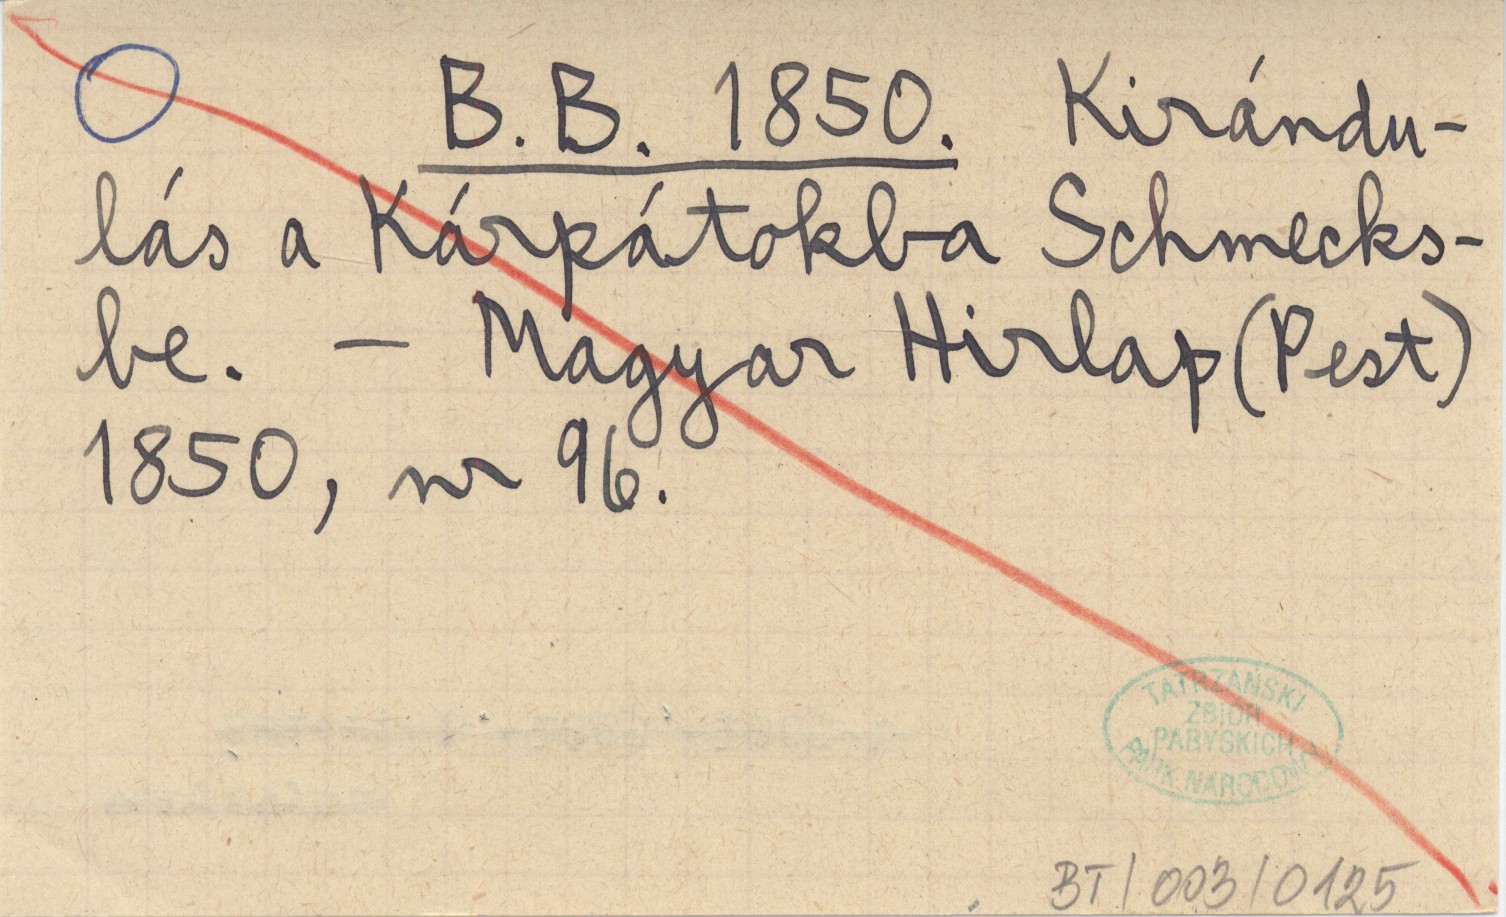 B. B. 1850. Kirándu-
lás a Kárpátokba Schmecks-
be. — Magyar Hirlap (Pest)
1850, nr 96.
TATRZAŃSKI
ZBIÓR
PARYSKICH
PARK NARODOWY
BT/003/0125